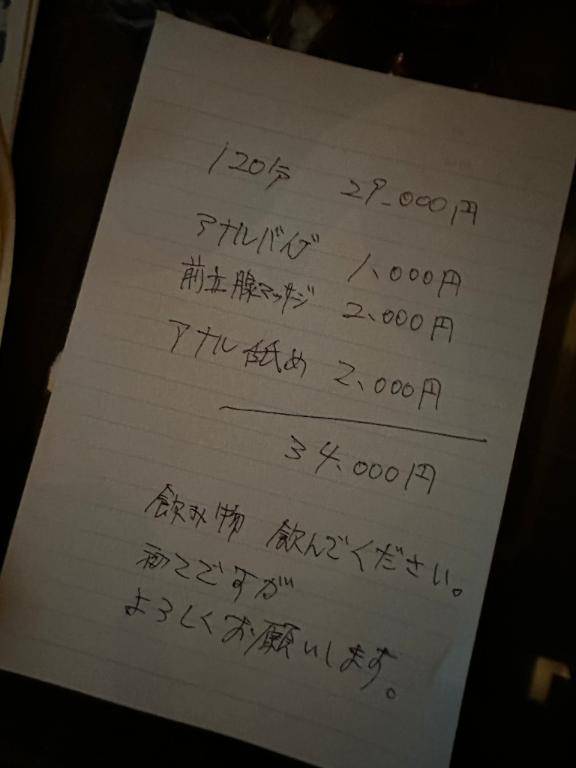 120分 29.000円
アナルバイブ 1.000円
前立腺マッサジ 2.000円
アナル舐め 2.000円
34.000円
飲み物 飲んでください。
初てですが
よろしくお願いします。